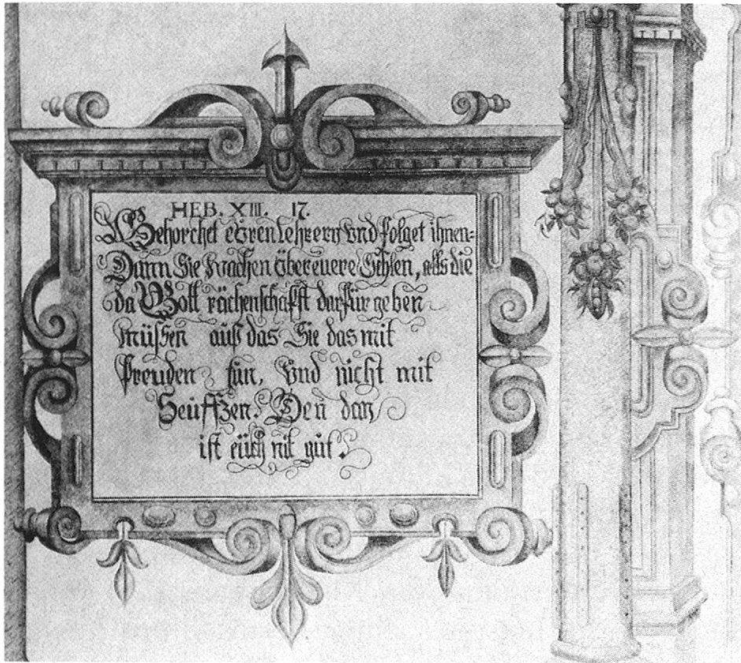 HEB. XIII. 17.
Gehorchet eüren Lehrern Vnd folget ihnen
Dann Sie wachen über euere Sehlen, alls die
da Gott rächenschafft darfür geben
müssen auß das Sie das mit
freuden tun, Vnd nicht mit
Seuffzen. Den das
ist eüch nit gut.